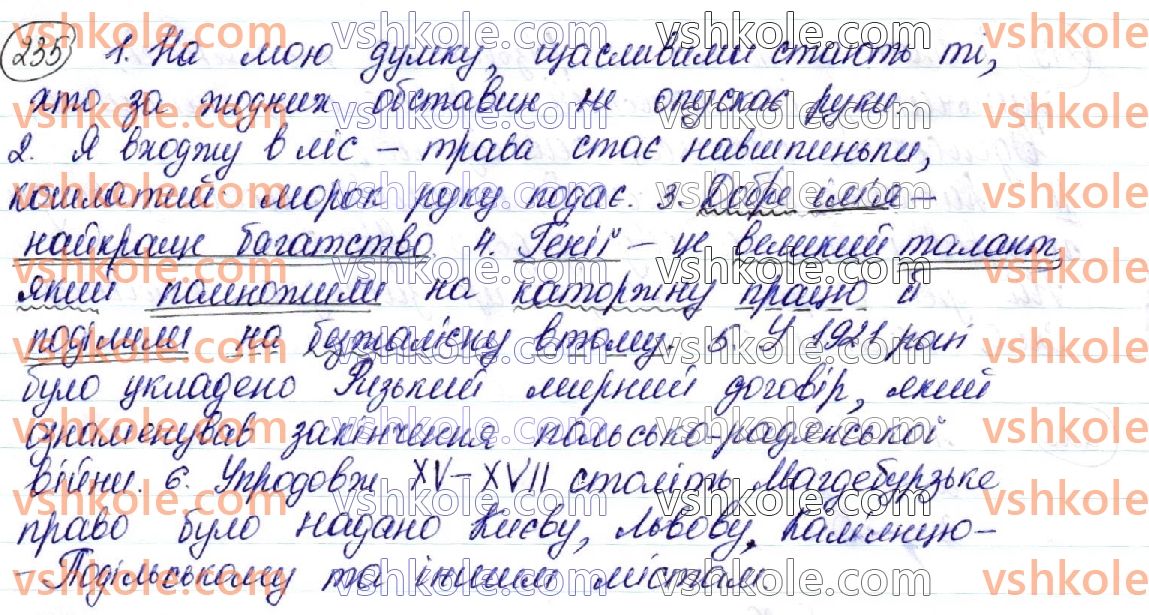 235 1. На мою думку, щасливими стають ті,
хто за жодних обставин не опускає руки.
2. Я входжу в ліс – трава стає навшпиньки,
кошлатий морок руку подає. 3. Добре ім'я –
найкраще багатство. 4. Генії – це великий талант,
який помножили на каторжну працю й
поділили на безжалісну втому. 5. У 1921 році
було укладено Ризький мирний договір, який
ознаменував закінчення польсько-радянської
війни. 6. Упродовж XV–XVII століть Магдебурзьке
право було надано Києву, Львову, Кам'янцю-
-Подільському та іншим містам.
vshkole.com